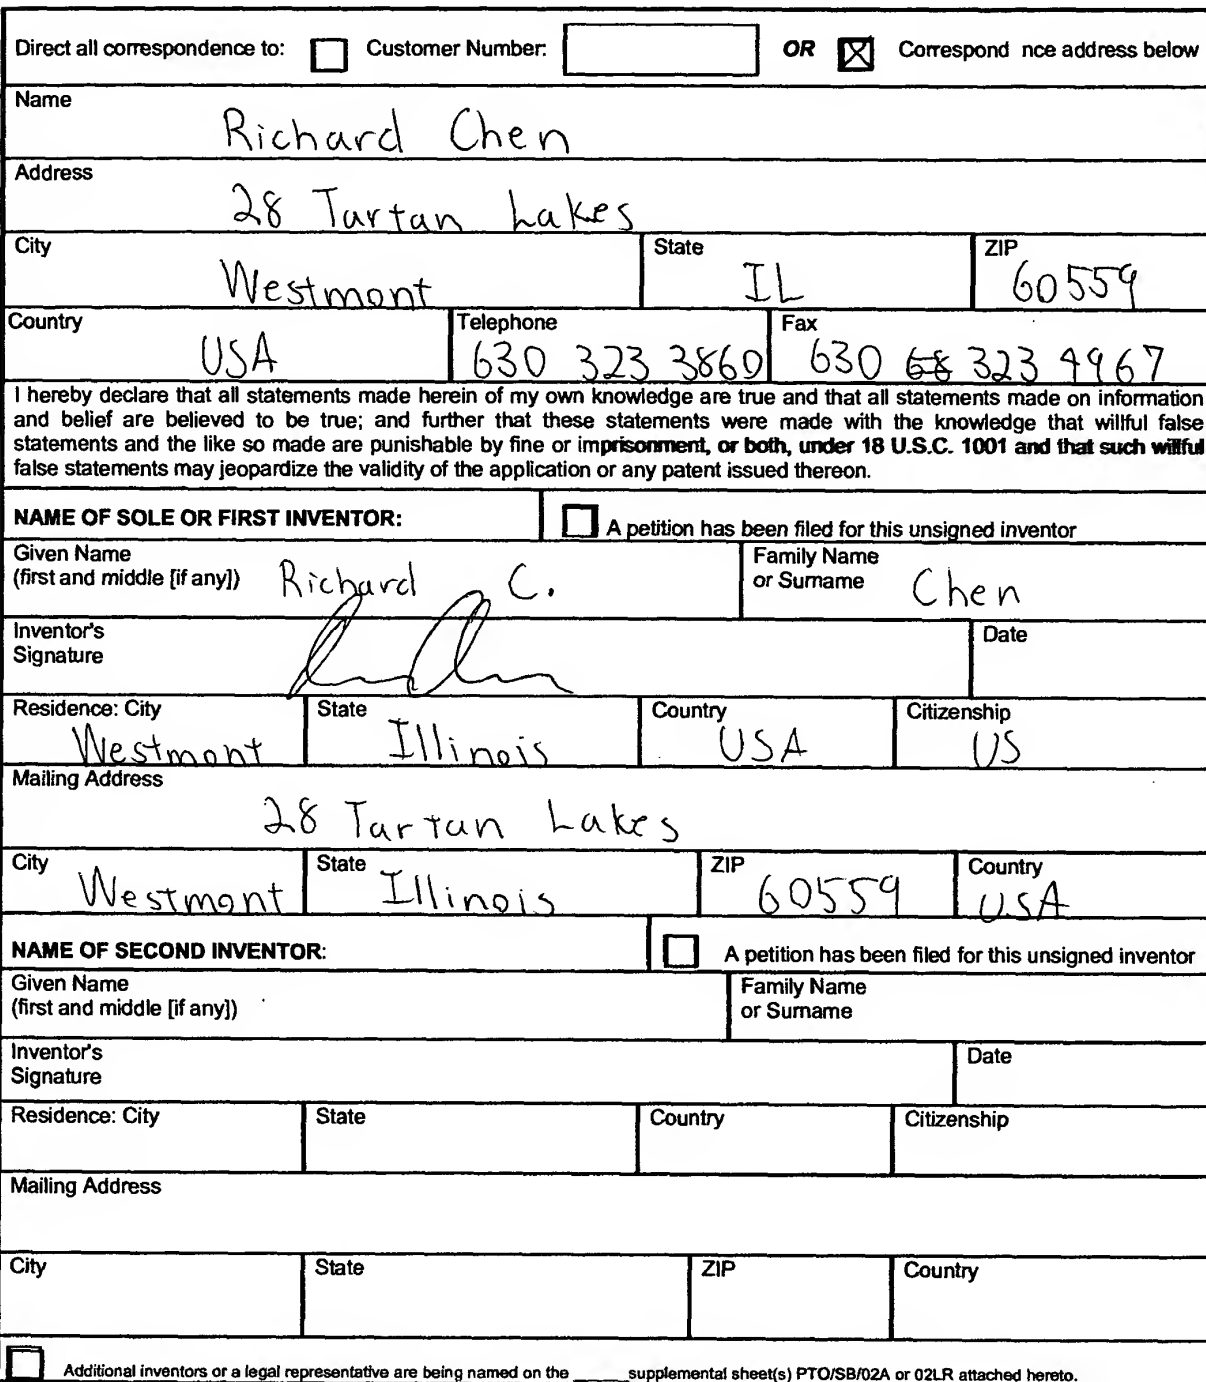 Direct all correspondence to: Customer Number: OR Correspond nce address below
Name
Richard Chen
Address
28 Tartan Lakes
City State ZIP
Westmont IL 60559
Country Telephone Fax
USA 630 323 3860 630 68 323 4967
I hereby declare that all statements made herein of my own knowledge are true and that all statements made on information
and belief are believed to be true; and further that these statements were made with the knowledge that willful false
statements and the like so made are punishable by fine or imprisonment, or both, under 18 U.S.C. 1001 and that such willful
false statements may jeopardize the validity of the application or any patent issued thereon.
NAME OF SOLE OR FIRST INVENTOR: A petition has been filed for this unsigned inventor
Given Name Family Name
(first and middle [if any]) Richard C. or Surname Chen
Inventor's Date
Signature
Residence: City State Country Citizenship
Westmont Illinois USA US
Mailing Address
28 Tartan Lakes
City State ZIP Country
Westmont Illinois 60559 USA
NAME OF SECOND INVENTOR: A petition has been filed for this unsigned inventor
Given Name Family Name
(first and middle [if any]) or Surname
Inventor's Date
Signature
Residence: City State Country Citizenship
Mailing Address
City State ZIP Country
Additional inventors or a legal representative are being named on the _____ supplemental sheet(s) PTO/SB/02A or 02LR attached hereto.